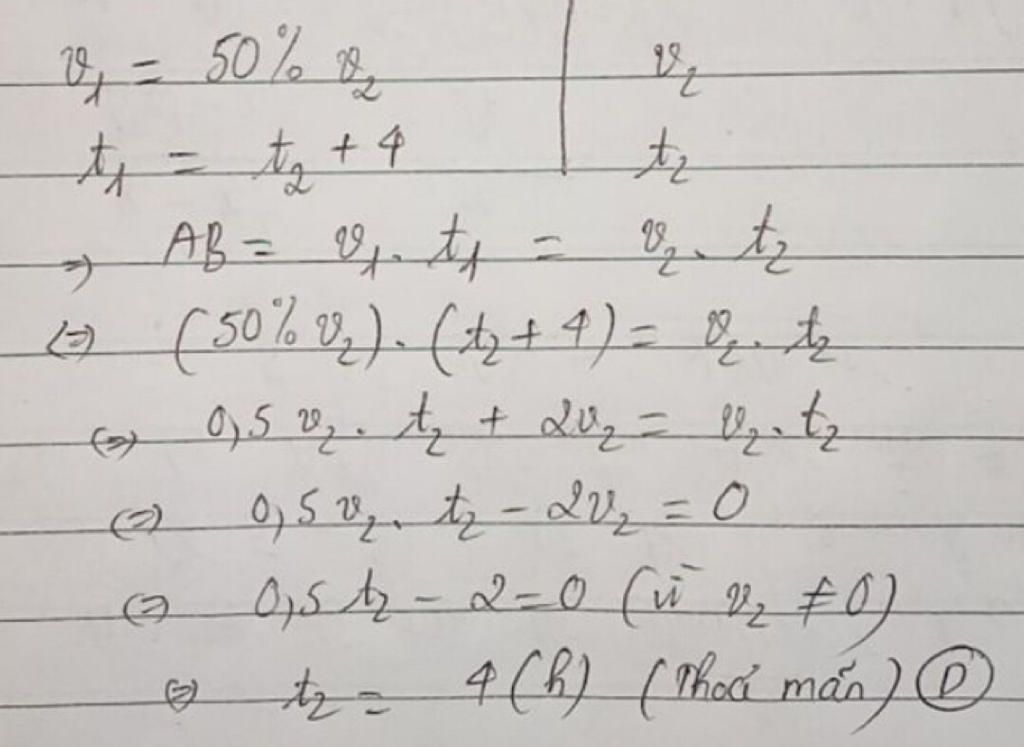 v₁ = 50% v₂ | v₂
t₁ = t₂ + 4 | t₂
=> AB = v₁. t₁ = v₂. t₂
(=) (50% v₂). (t₂ + 4) = v₂. t₂
(=) 0,5 v₂. t₂ + 2v₂ = v₂. t₂
(=) 0,5 v₂. t₂ - 2v₂ = 0
(=) 0,5 t₂ - 2 = 0 (vì v₂ ≠ 0)
(=) t₂ = 4 (h) (Thoả mãn) Ⓓ